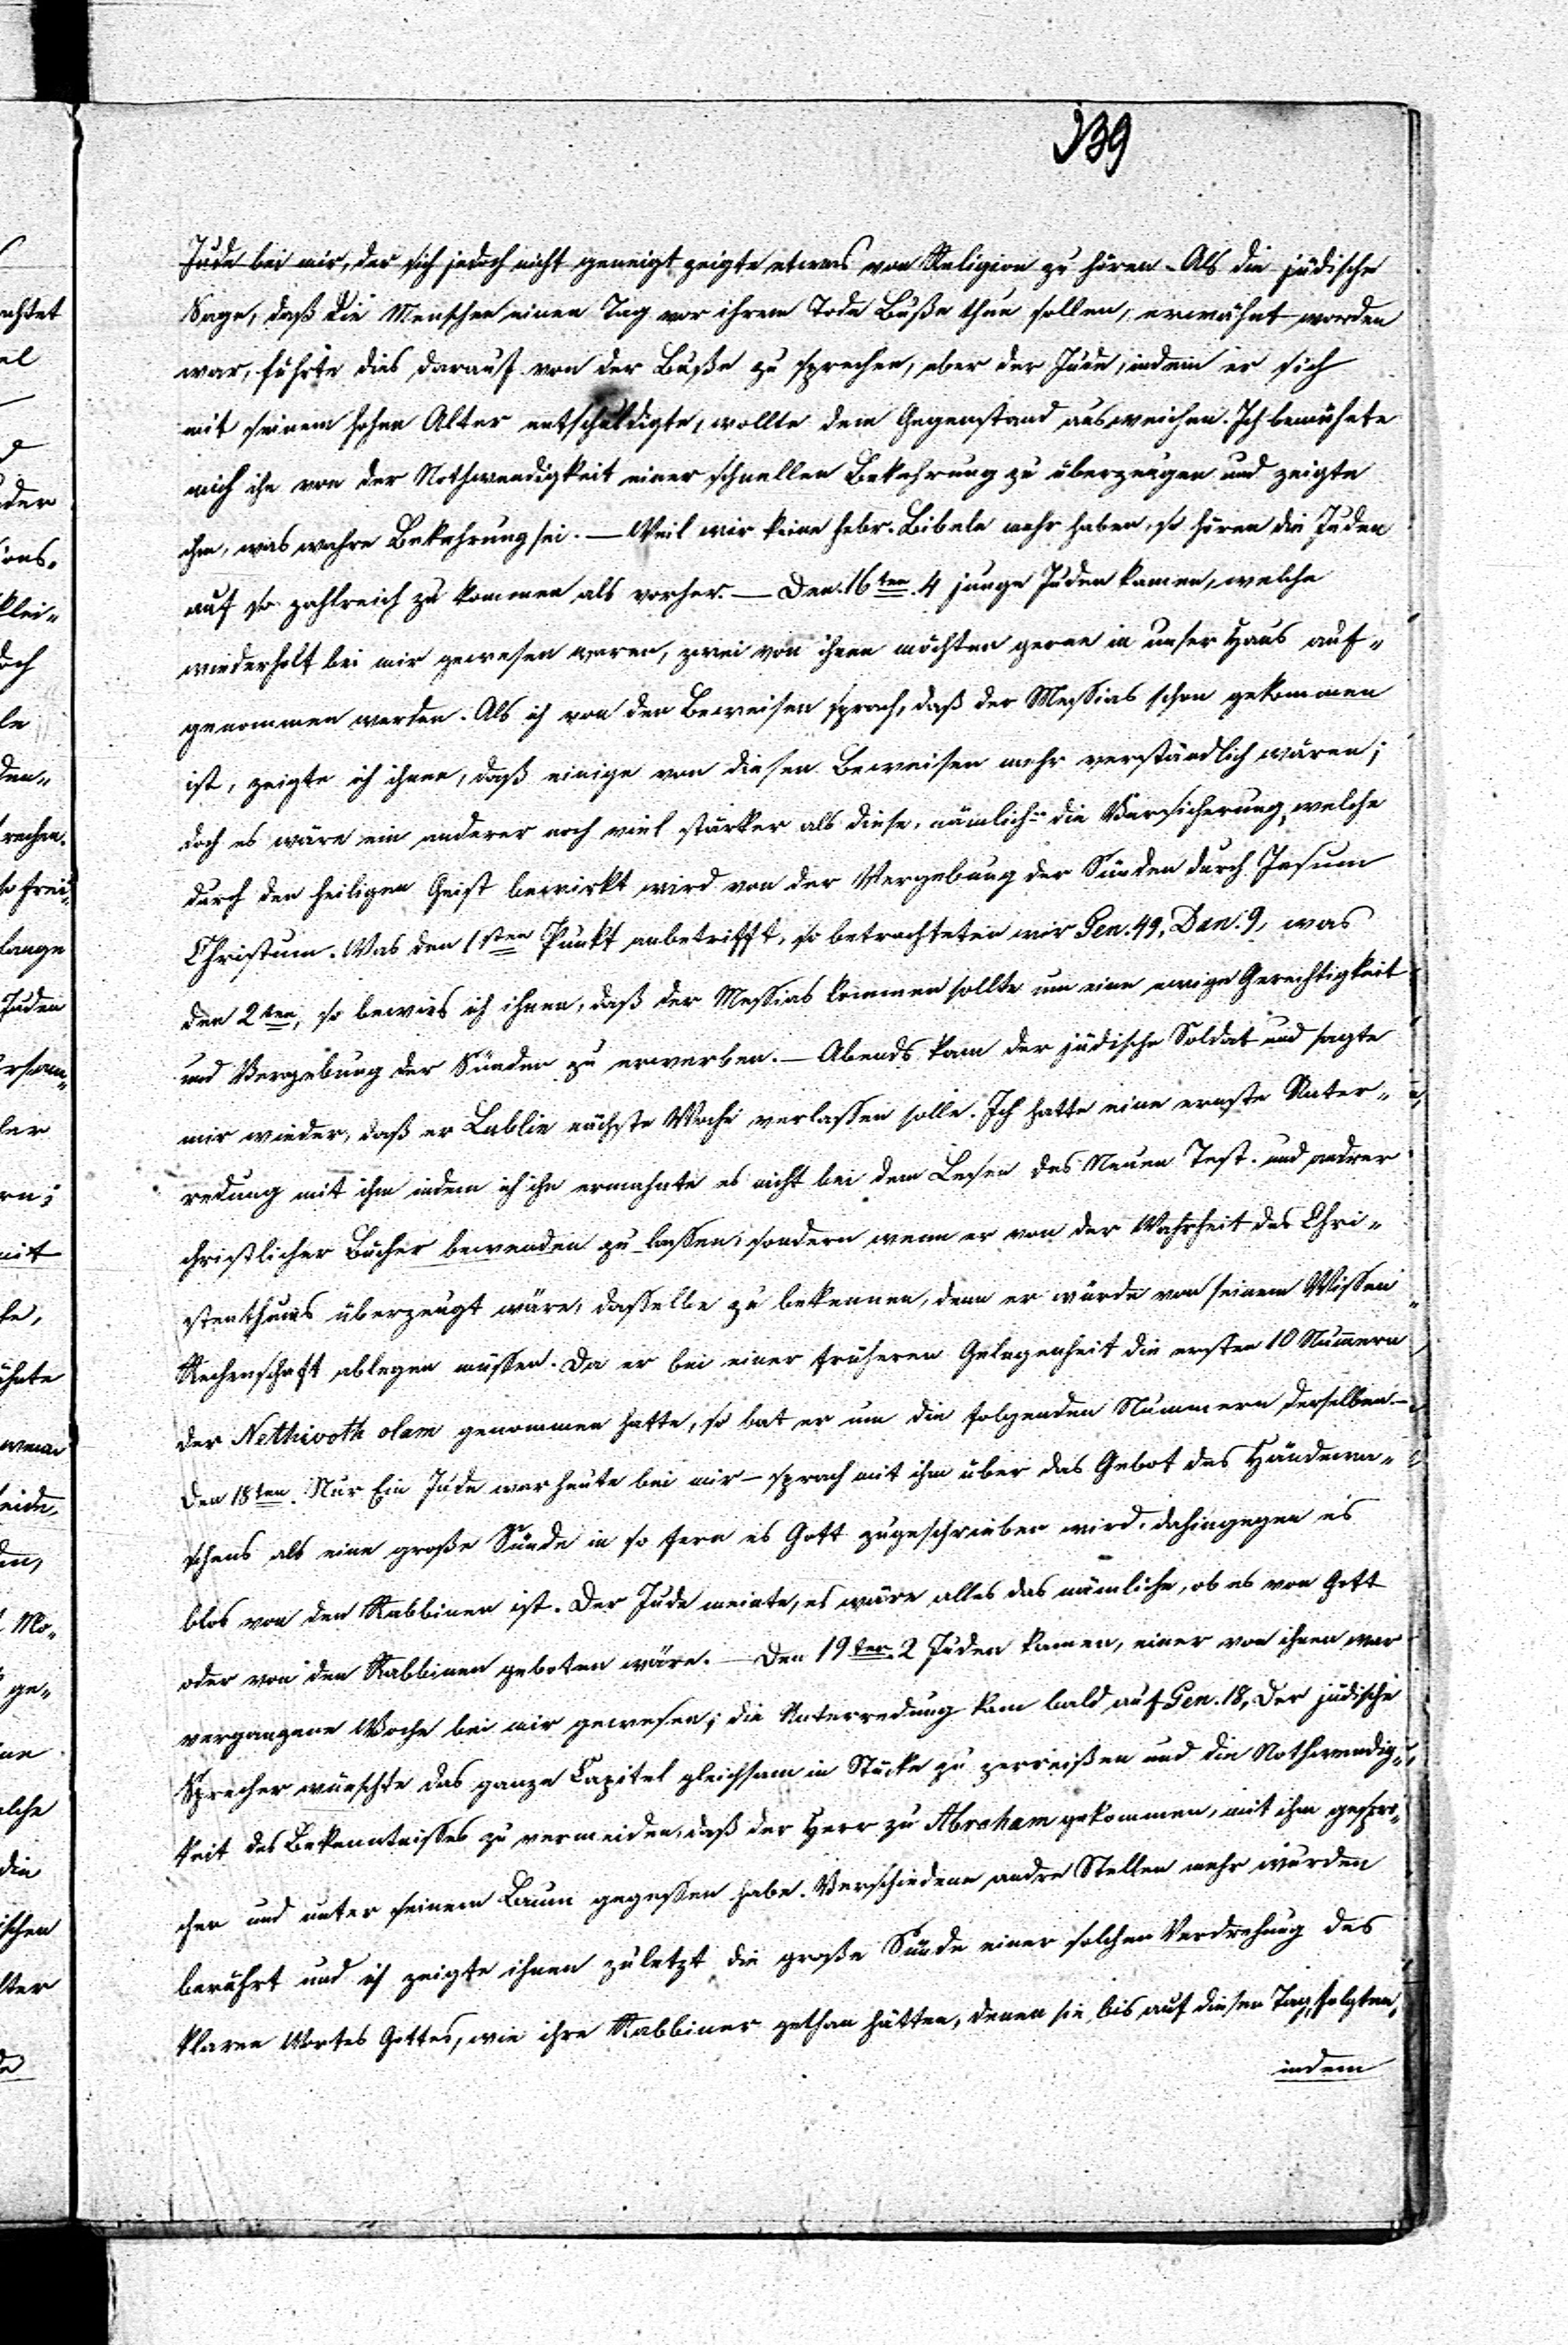 339
Jude bei mir, der sich jedoch nicht geneigt zeigte etwas von Religion zu hören. Als die jüdische
Sage, daß die Menschen einen Tag vor ihrem Tode Buße thun sollen, erwähnt worden
war, führte dies darauf von der Buße zu sprechen, aber der Jude, indem er sich
mit seinem hohen Alter entschuldigte, wollte dem Gegenstand ausweichen. Ich bemühete
mich ihn von der Nothwendigkeit einer schnellen Bekehrung zu überzeugen und zeigte
ihm, was wahre Bekehrung sei. — Weil wir keine hebr. Bibeln mehr haben, so hören die Juden
auf so zahlreich zu kommen als vorher. — Den 16ten. 4 junge Juden kamen, welche
wiederholt bei mir gewesen waren, zwei von ihnen möchten gerne in unser Haus auf„
genommen werden. Als ich von den Beweisen sprach, daß der Messias schon gekommen
ist, zeigte ich ihnen, daß einige von diesen Beweisen mehr verständlich wären;
doch es wäre ein anderer noch viel stärker als diese, nämlich: die Versicherung, welche
durch den heiligen Geist bewirkt wird von der Vergebung der Sünden durch Jesum
Christum. Was den 1sten Punkt anbetrifft, so betrachteten wir Gen. 49, Dan. 9, was
den 2ten, so bewies ich ihnen, daß der Messias kommen sollte um eine ewige Gerechtigkeit
und Vergebung der Sünden zu erwerben. — Abends kam der jüdische Soldat und sagte
mir wieder, daß er Lublin nächste Woche verlassen solle. Ich hatte eine ernste Unter„
redung mit ihm indem ich ihn ermahnte es nicht bei dem Lesen des Neuen Test. und andrer
christlicher Bücher bewenden zu lassen, sondern wenn er von der Wahrheit des Chri„
stenthums überzeugt wäre, dasselbe zu bekennen, denn er würde von seinem Wissen
Rechenschaft ablegen müssen. Da er bei einer früheren Gelegenheit die ersten 10 Nummern
der Nethivoth olam genommen hatte, so bat er um die folgenden Nummern derselben —
Den 18ten. Nur Ein Jude war heute bei mir — sprach mit ihm über das Gebot des Händewa„
schens als eine große Sünde in so fern es Gott zugeschrieben wird, dahingegen es
blos von den Rabbinen ist. Der Jude meinte, es wäre alles das nämliche, ob es von Gott
oder von den Rabbinen geboten wäre. — Den 19ten. 2 Juden kamen, einer von ihnen war
vergangene Woche bei mir gewesen; die Unterredung kam bald auf Gen. 18, Der jüdische
Sprecher wünschte das ganze Capitel gleichsam in Stücke zu zerreißen und die Nothwendig„
keit des Bekenntnisses zu vermeiden, daß der Herr zu Abraham gekommen, mit ihm gespro„
chen und unter seinem Baum gegessen habe. Verschiedene andre Stellen mehr wurden
berührt und ich zeigte ihnen zuletzt die große Sünde einer solchen Verdrehung des
klaren Wortes Gottes, wie ihre Rabbiner gethan hätten, denen sie bis auf diesen Tag folgten,
indem